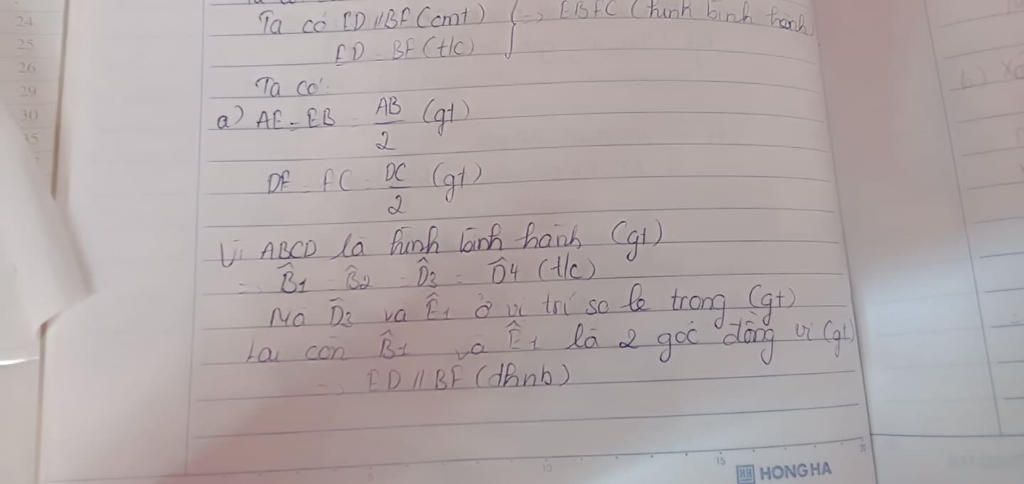 24
25
26
29
30
Ta có ED // BF (cmt) } => EBFC (hình bình hành
ED = BF (t/c)
Ta có:
a) AE = EB = AB/2 (gt)
DF = FC = DC/2 (gt)
Vì ABCD là hình bình hành (gt)
=> B̂1 = B̂2 = D̂3 = D̂4 (t/c)
Mà D̂3 và Ê1 ở vị trí so le trong (gt)
Lại còn B̂1 và Ê1 là 2 góc đồng vị (gt)
=> ED // BF (dhnb)
b)
5
10
15
HONG HA